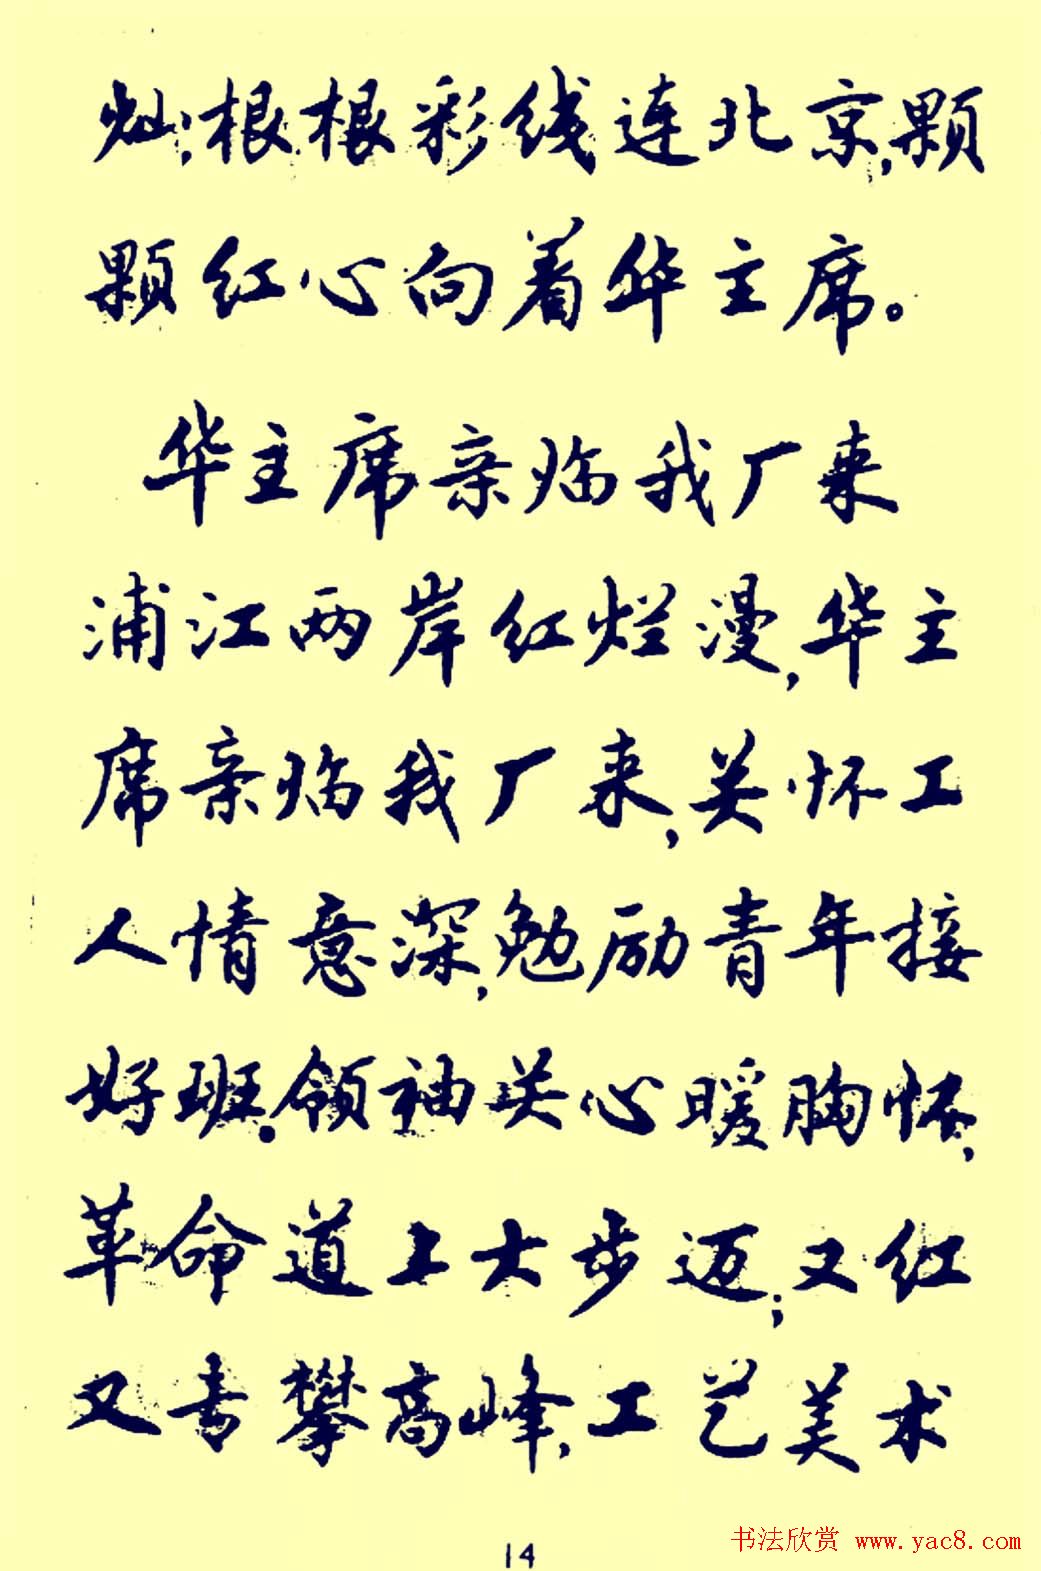 灿;根根彩线连北京,颗
颗红心向着华主席。
华主席亲临我厂来
浦江两岸红烂漫,华主
席亲临我厂来,关怀工
人情意深,勉励青年接
好班.领袖关心暖胸怀,
革命道上大步迈;又红
又专攀高峰,工艺美术
14
书法欣赏 www.yac8.com